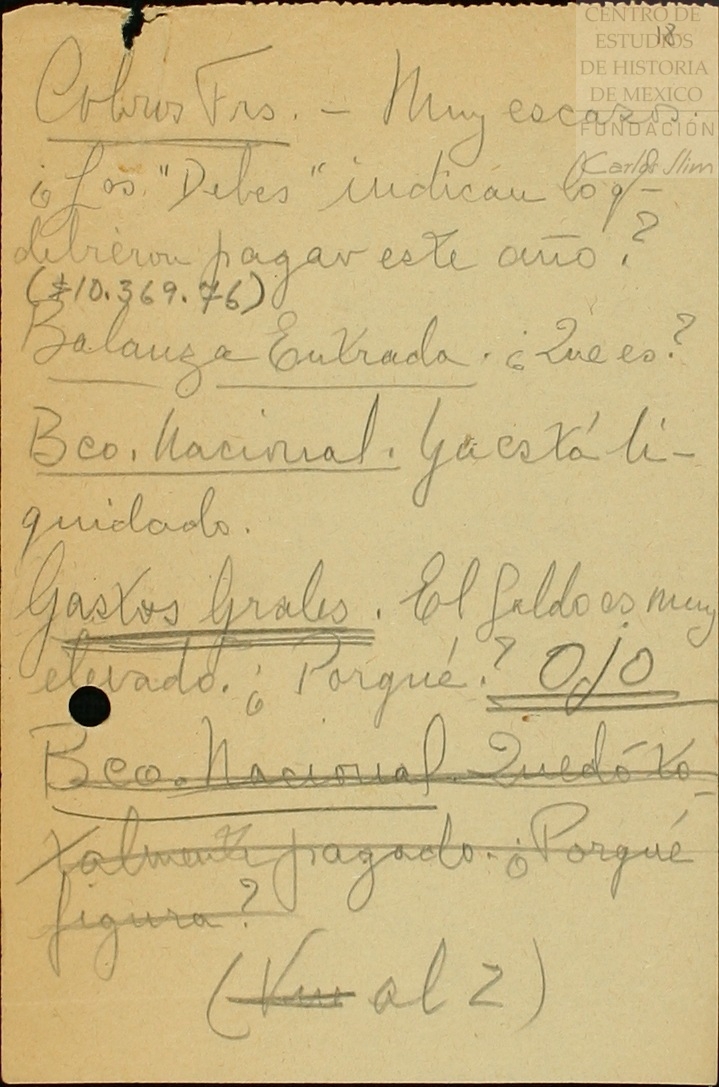 CENTRO DE
18
ESTUDIOS
DE HISTORIA
DE MEXICO
FUNDACIÓN
Carlos Slim
Cobros Frs. - Muy escasos.
¿Los "Debes" indican lo q-
debieron pagar este año?
($10.369.76)
Balanza Entrada. ¿Que es?
Bco. Nacional. Ya está li-
quidado.
Gastos Grales. El Saldo es muy
elevado. ¿Porqué? OJO
Bco. Nacional. Quedó to-
talmente pagado. ¿Porqué
figura?
( al 2)